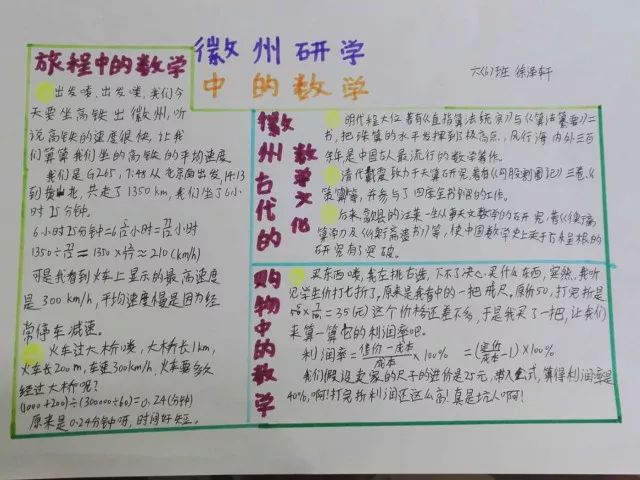 徽州研学
中的数学
六(6)班 徐泽轩
旅程中的数学
出发喽,出发喽,我们今
天要坐高铁出徽州,听
说高铁的速度很快,让我
们算算我们坐的高铁的平均速度
我们是G265,7:48从北京南出发,14:13
到黄山北,共走了1350km,我们坐了6小
时25分钟。
6小时25分钟=6 5/12小时=77/12小时
1350÷77/12=1350×12/77≈210(km/h)
可是我看到火车上显示的最高速度
是300km/h,平均速度慢是因为经
常停车减速。
火车过大桥喽,大桥长1km,
火车长200m,车速300km/h,火车要多久
经过大桥呢?
(1000+200)÷(300000÷60)=0.24(分钟)
原来是0.24分钟呀,时间好短。
徽州古代的
数学文化
明代程大位著有《直指算法统宗》与《算法纂要》二
书,把珠算的水平发挥到极高点,风行海内外三百
年是中国古人最流行的数学著作。
清代戴震致力于天算研究著有《勾股割圜记》三卷、《
策算》等,并参与了四库全书的工作。
后来,歙县的汪莱一生从事天文数学的研究,著《衡斋
算学》及《衡斋遗书》等,使中国数学史上关于
研究有了突破。
购物中的数学
买东西喽,我左挑右选,下不了决心买什么东西,突然,我听
见学生价打七折了,原来是我看中的一把戒尺。原价50,打完折是
50×7/10=35(元)这个价格还差不多,于是我买了一把,让我们
来算一算它的利润率吧。
利润率=售价-成本/成本×100% =(售价/成本-1)×100%
我们假设卖家的尺子的进价是25元,带入公式,算得利润率是
40%,啊!打完折利润还这么高!真是坑人啊!